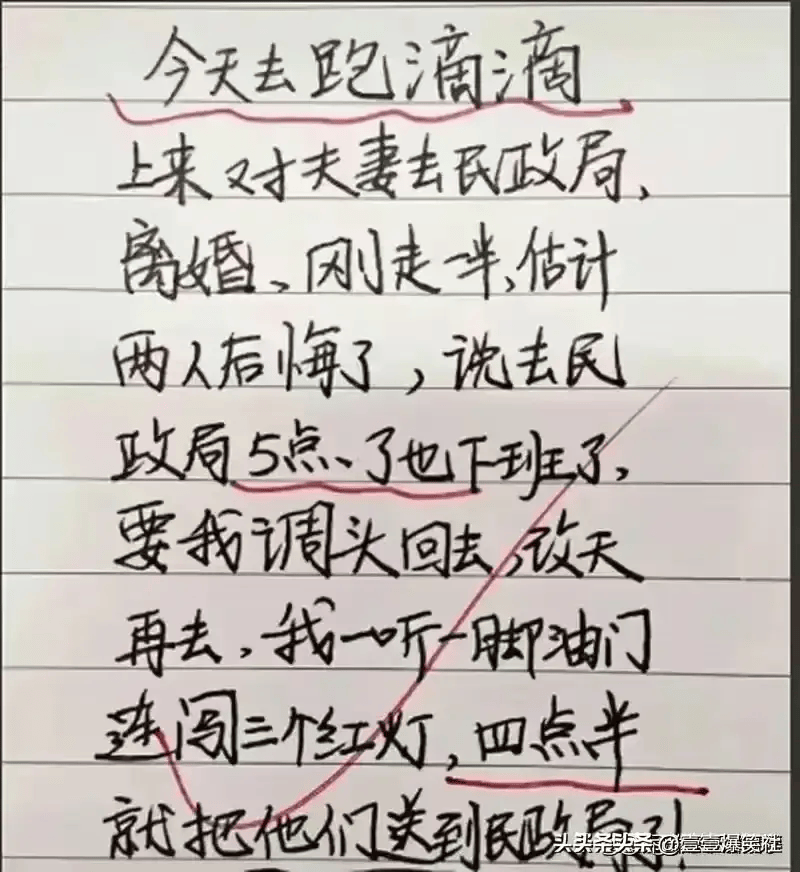 今天去跑滴滴
上来对夫妻去民政局、
离婚、刚走一半、估计
两人后悔了，说去民
政局5点、了也下班了，
要我调头回去，改天
再去，我一听一脚油门
连闯三个红灯，四点半
就把他们送到民政局了!
头条 @壹壹爆笑班